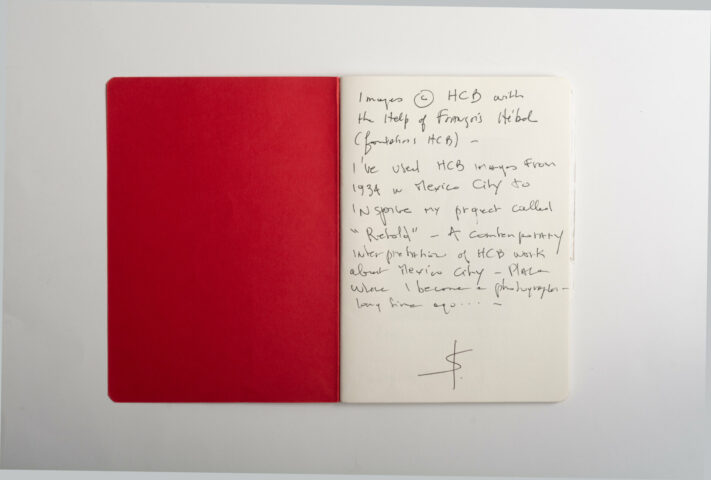 Images © HCB with
the Help of François Hébel
(fondations HCB) –
I've used HCB images from
1934 in Mexico City to
INSPIRE my project called
"Retold" – A contemporary
interpretation of HCB work
about Mexico City – Place
where I became a photographer –
long time ago... –